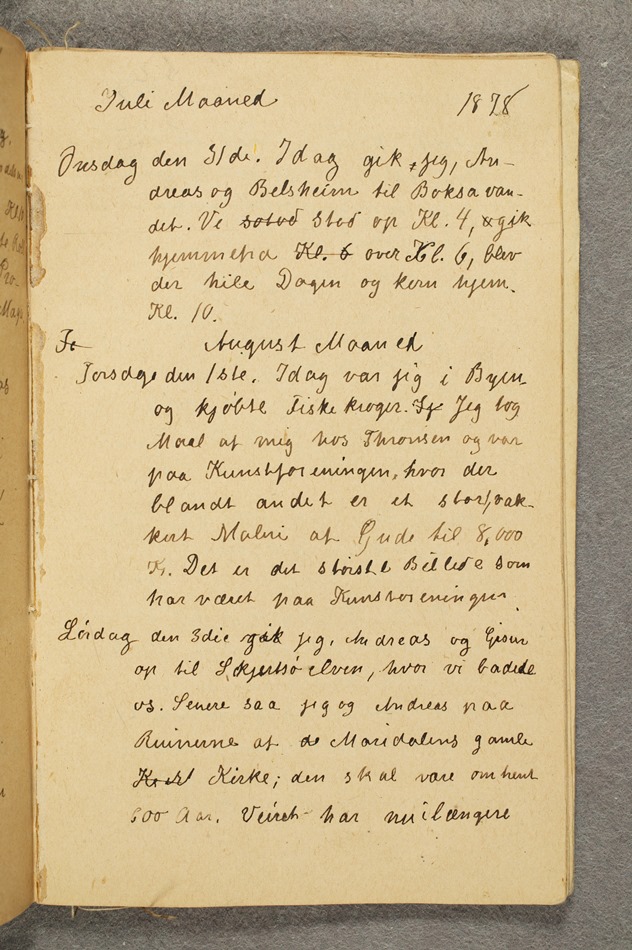 Juli Maaned 1878
Onsdag den 31de. Idag gik jeg, An-
dreas og Belsheim til Boksavan-
det. Vi stod op Kl. 4, gik
hjemmefra Kl. 6 over Kl. 6, blev
der hele Dagen og kom hjem
Kl. 10.
August Maaned
Torsdag den 1ste. Idag var jeg i Byen
og kjøbte Fiskekroger. Jeg tog
Maal af mig hos Thronsen og var
paa Kunstforeningen, hvor der
blandt andet er et stort, vak-
kert Maleri af Gude til 8,000
Kr. Det er det største Billede som
har været paa Kunstforeningen.
Lórdag den 3die gik jeg, Andreas og
op til Skjærsjöelven, hvor vi badede
os. Senere saa jeg og Andreas paa
Ruinerne af de Maridalens gamle
Kirke; den skal være omhent
600 Aar. Veiret har nu i længere